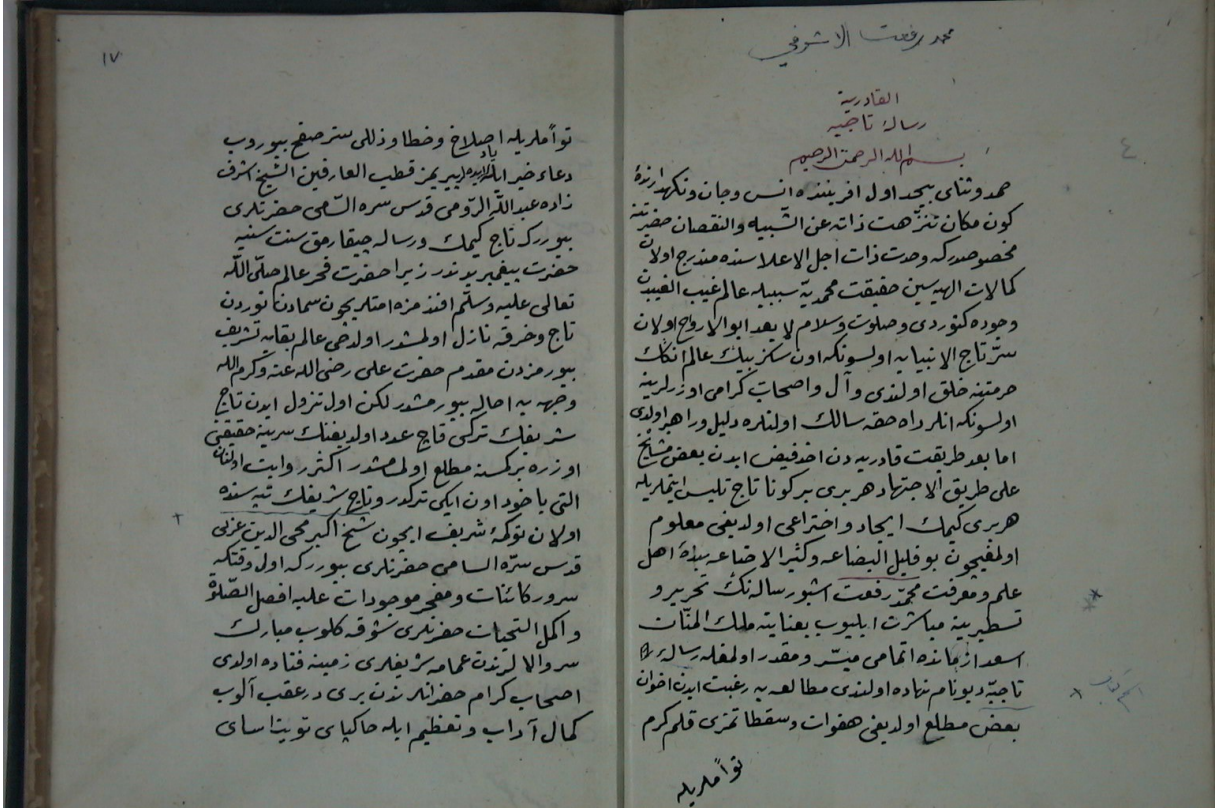 محمد رفعت الاشرفي
القادرية
رسالۀ تاجيه
بسم الله الرحمن الرحيم
حمد وثنای بيحد اول افريننده انس وجان ونكهدارندۀ
كون مكان تنزهت ذاته عن الشبيه والنقصان حضرتنه
مخصوصدركه وحدت ذات اجل الاعلاسنده مندرج اولان
كمالات الهيه سين حقيقت محمديه سببيله عالم غيب الغيبدن
وجوده كتوردى وصلوت وسلام لا يعد ابو الارواح اولان
سر تاج الانبيايه اولسونكه اون سكز بيك عالم انكك
حرمتنه خلق اولندى وآل واصحاب كرامى اوزرلرينه
اولسونكه انلر داه حقه سالك اولنلره دليل وراهبر اولدى
اما بعد طريقت قادريه دن اخذ فيض ايدن بعض مشايخ
على طريق الاجتهاد هر برى بر كونا تاج تلبس ايتملريله
هر برى كيمك ايجاد واختراعى اولديغى معلوم
اولمغيچون بو قليل البضاعه وكثير الاضاعه بندۀ اهل
علم ومعرفت محمد رفعت اشبو رساله نك تحرير و
تسطيرينه مباشرت ايليوب بعنايته ملك المنان
اسعد ازمانده اتمامى ميسر ومقدر اولمغله رسالۀ
تاجيه ديو نام نهاده اولندى مطالعه يه رغبت ايدن اخوان
بعض مطلع اولديغى هفوات وسقطاتمزى قلم كرم
توأملريله
٤
١٧
توأملريله اصلاح وخطا وذللى ستر صفح بيوروب
دعاء خير ايله ياد ايده لر پيريمز قطب العارفين الشيخ اشرف
زاده عبد الله الرومى قدس سره السامى حضرتلرى
بيورركه تاج كيمك ورساله چيقارمق سنت سنيه
حضرت پيغمبريدندر زيرا حضرت فخر عالم صلى الله
تعالى عليه وسلم افندمزه امتلريچون سمادن نوردن
تاج وخرقه نازل اولمشدر اولدخى عالم بقايه تشريف
بيورمزدن مقدم حضرت على رضى الله عنه وكرم الله
وجهه يه احاله بيورمشدر لكن اول تنزول ايدن تاج
شريفك تركى قاچ عدد اولديغنك سرينه حقيقتى
اوزره بر كسنه مطلع اولمامشدر اكثر روايت اولنان
التى ياخود اون ايكى تركدر وتاج شريفك تپه سنده
اولان توكمۀ شريف ايچون شيخ اكبر محى الدين عربى
قدس سره السامى حضرتلرى بيورركه اول وقتكه
سرور كائنات ومفخر موجودات عليه افضل الصلوة
واكمل التحيات حضرتلرى شوقه كلوب مبارك
سر والالرندن عمامه شريفلرى زمينه فتاده اولدى
اصحاب كرام حضراتلرندن برى در عقب آلوب
كمال آداب وتعظيم ايله خاكپاى توتياساى